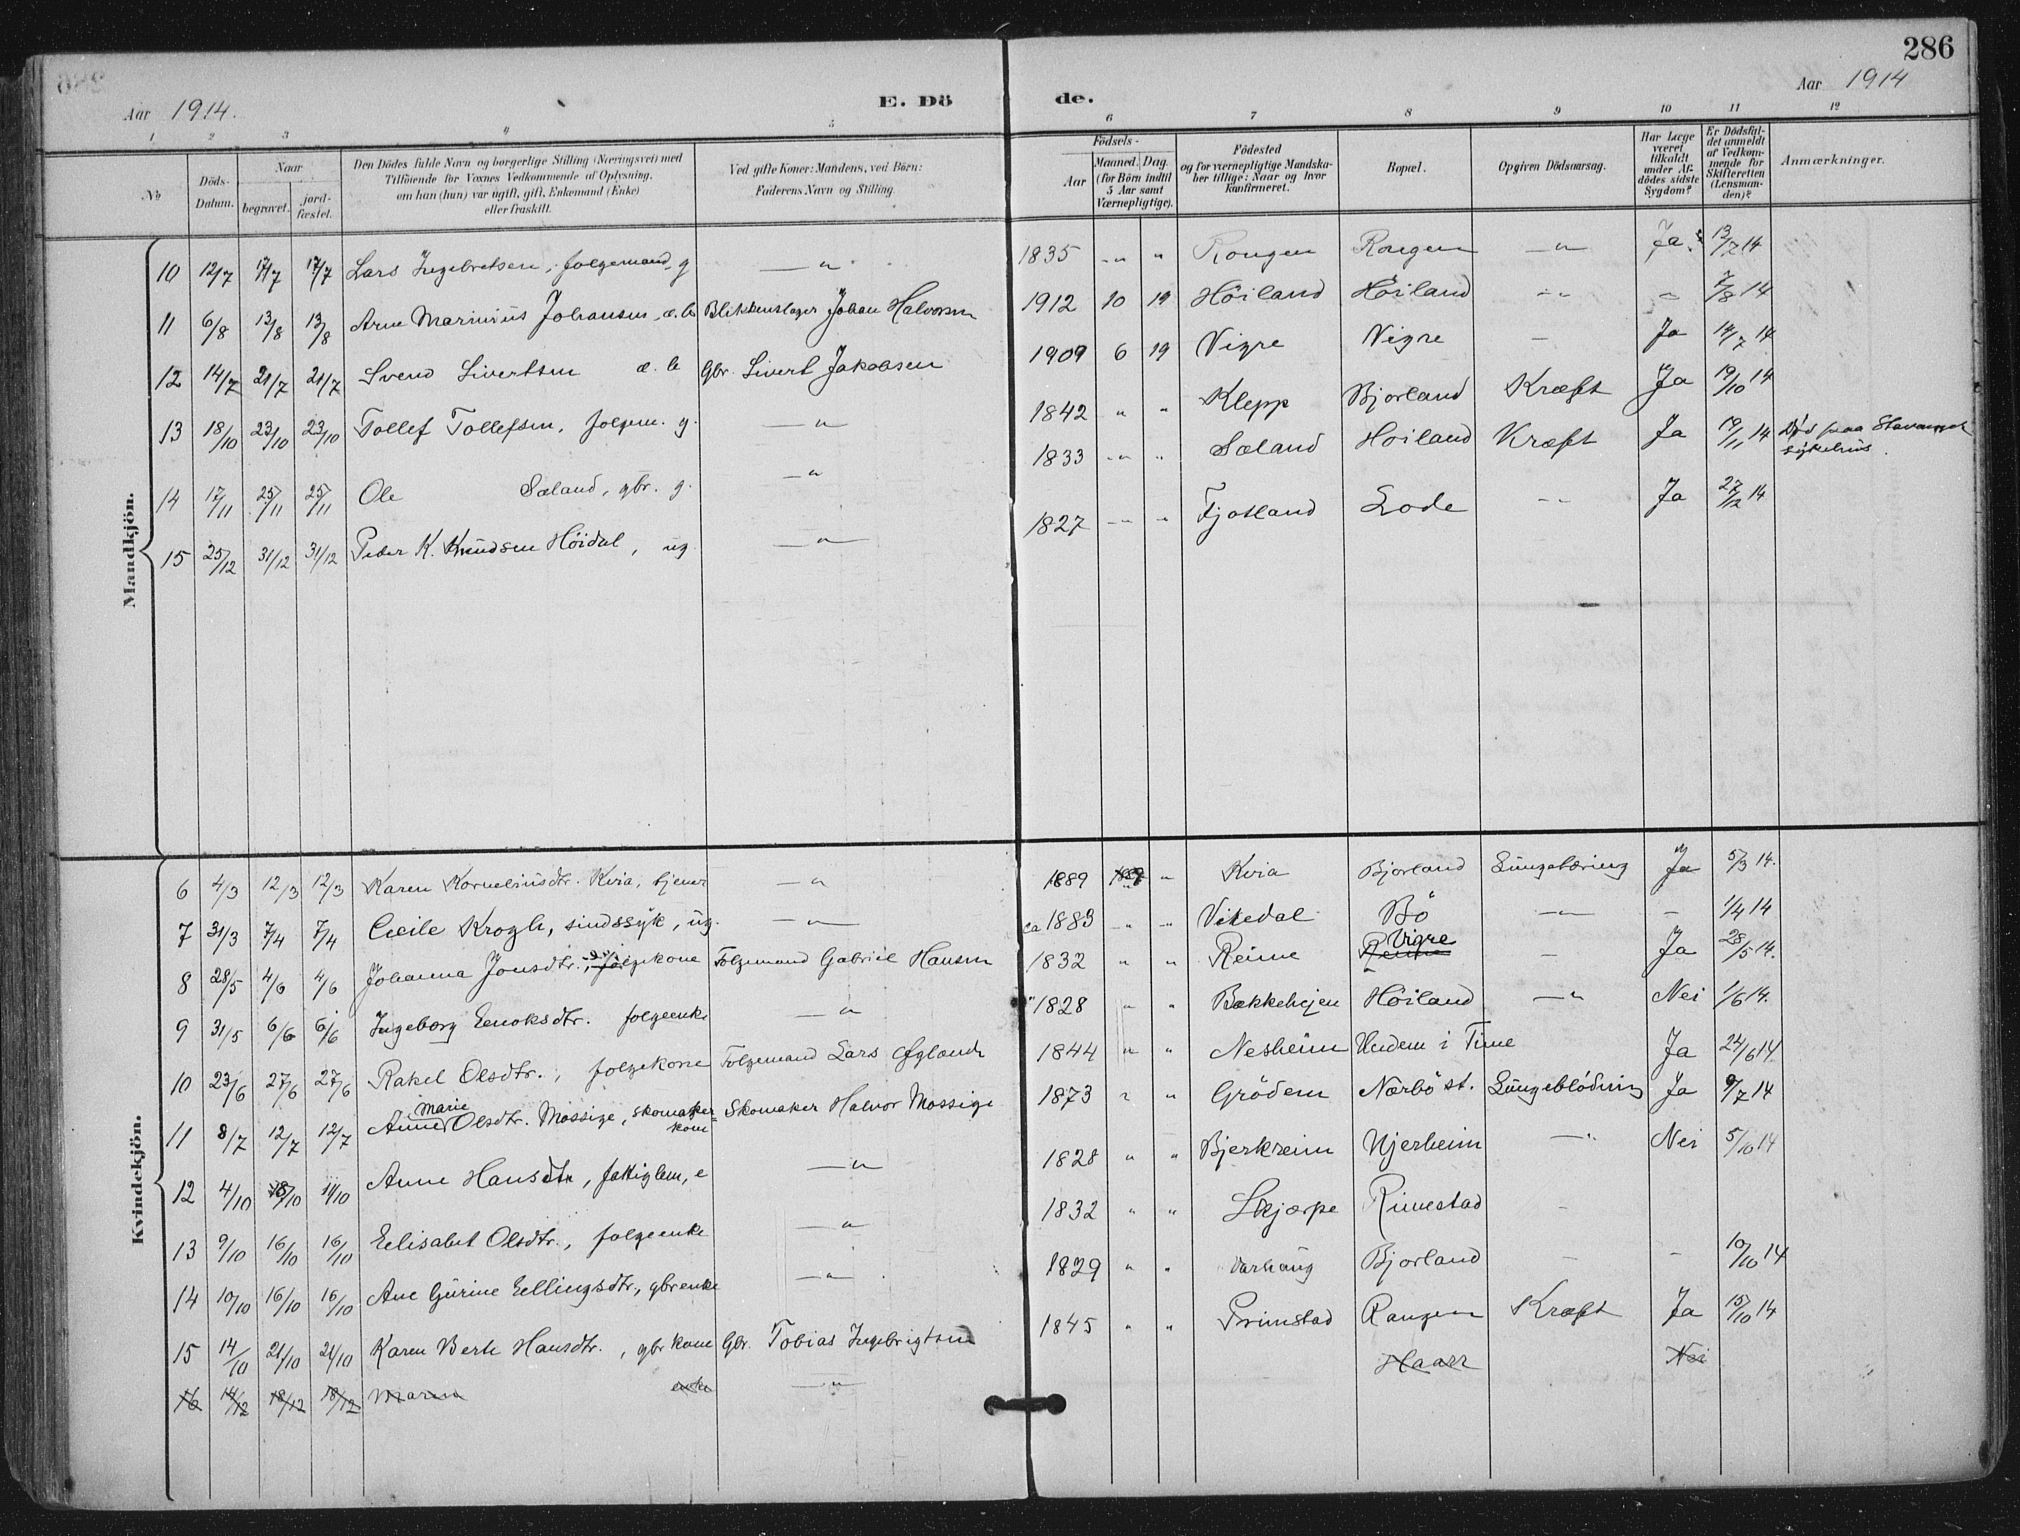 286
Aar 1914.
E. Dö
de.
Aar 1914
1 2 3 4 5 6 7 8 9 10 11 12
No
Döds-Datum.
Naar
begravet.
jord-fæstet.
Den Dödes fulde Navn og borgerlige Stilling (Næringsvei) med
Tilföiende for Voxnes Vedkommende af Oplysning,
om han (hun) var ugift, gift, Enkemand (Enke)
eller fraskilt.
Ved gifte Koner: Mandens, ved Börn:
Faderens Navn og Stilling.
Födsels-
Aar
Maaned. Dag.
(for Börn indtil 5 Aar samt Værnepligtige).
Födested
og for værnepligtige Mandskaber tillige: Naar og hvor konfirmeret.
Bopæl.
Opgiven Dödsaarsag.
Har Læge været tilkaldt under Afdödes sidste Sygdom?
Er Dödsfaldet anmeldt af Vedkommende for Skifteretten (Lensmanden)?
Anmærkninger.
Mandkjön.
10 12/7 17/7 17/7 Lars Ingebretsen, folgemand, g — " 1835 " " Rongen Rongen — " Ja 13/7 14
11 6/8 13/8 13/8 Arne Marinius Johansen, æ. b Blikkenslager Johan Halvorsen 1912 10 19 Höiland Höiland - " " 7/8 14
12 14/7 21/7 21/7 Svend Sivertsen æ. b Gbr. Sivert Jakobsen 1909 6 19 Vigre Vigre — Ja 14/7 14
13 18/10 23/10 23/10 Tollef Tollefsen, folgem. g. — " 1842 " " Klepp Bjorland Kræft Ja 19/10 14
14 17/11 25/11 25/11 Ole Sæland, gbr. g. — " 1833 " " Sæland Höiland Kræft Ja 19/11 14 Död paa Stavanger sykehus.
15 25/12 31/12 31/12 Peder K. Knudsen Höidal, ug. — " 1827 " " Fjotland Lode - " Ja 27/12 14
Kvindekjön.
6 4/3 12/3 12/3 Karen Korneliusdtr. Kvia, tjener — " 1889 " " Kvia Bjorland Lungetæring Ja 5/3 14.
7 31/3 7/4 7/4 Cecile Krogh, sindssyk, ug. — " ca 1883 " " Vikedal Bö — " - 1/4 14
8 28/5 4/6 4/6 Johanna Jonsdtr., folgekone Folgemand Gabriel Hansen 1832 " " Reime Vigre — Ja 28/5 14.
9 31/5 6/6 6/6 Ingeborg Eenoksdtr. folgeenke — " 1828 " " Bækkehejen Höiland — " Nei 1/6 14.
10 23/6 27/6 27/6 Rakel Olsdtr., folgekone Folgemand Lars 1844 " " Nesheim Undem i Time Ja 24/6 14
11 8/7 12/7 12/7 Anne Marie Olsdtr. Mossige, skomakerkone Skomaker Halvor Mossige 1873 " " Grödem Nærbö st. Lungeblödning Ja 9/7 14
12 4/10 18/10 19/10 Anne Hansdtr, fattiglem, e — " 1828 " " Bjerkreim Njerheim — " Nei 5/10 14
13 9/10 16/10 16/10 Eelisabet Olsdtr., folgeenke — " 1832 " " Skjærpe Rimestad -
14 10/10 16/10 16/10 Ane Gurine Eellingsdtr, gbrenke — " 1829 " " Varhaug Bjorland — - 10/10 14
15 14/10 21/10 21/10 Karen Berte Hansdtr., gbrkone Gbr. Tobias Ingebrigtsen 1845 " " Grimstad Rongen Kræft Ja 15/10 14
16 14/12 18/12 18/12 Maren enke — " Haarr Nei